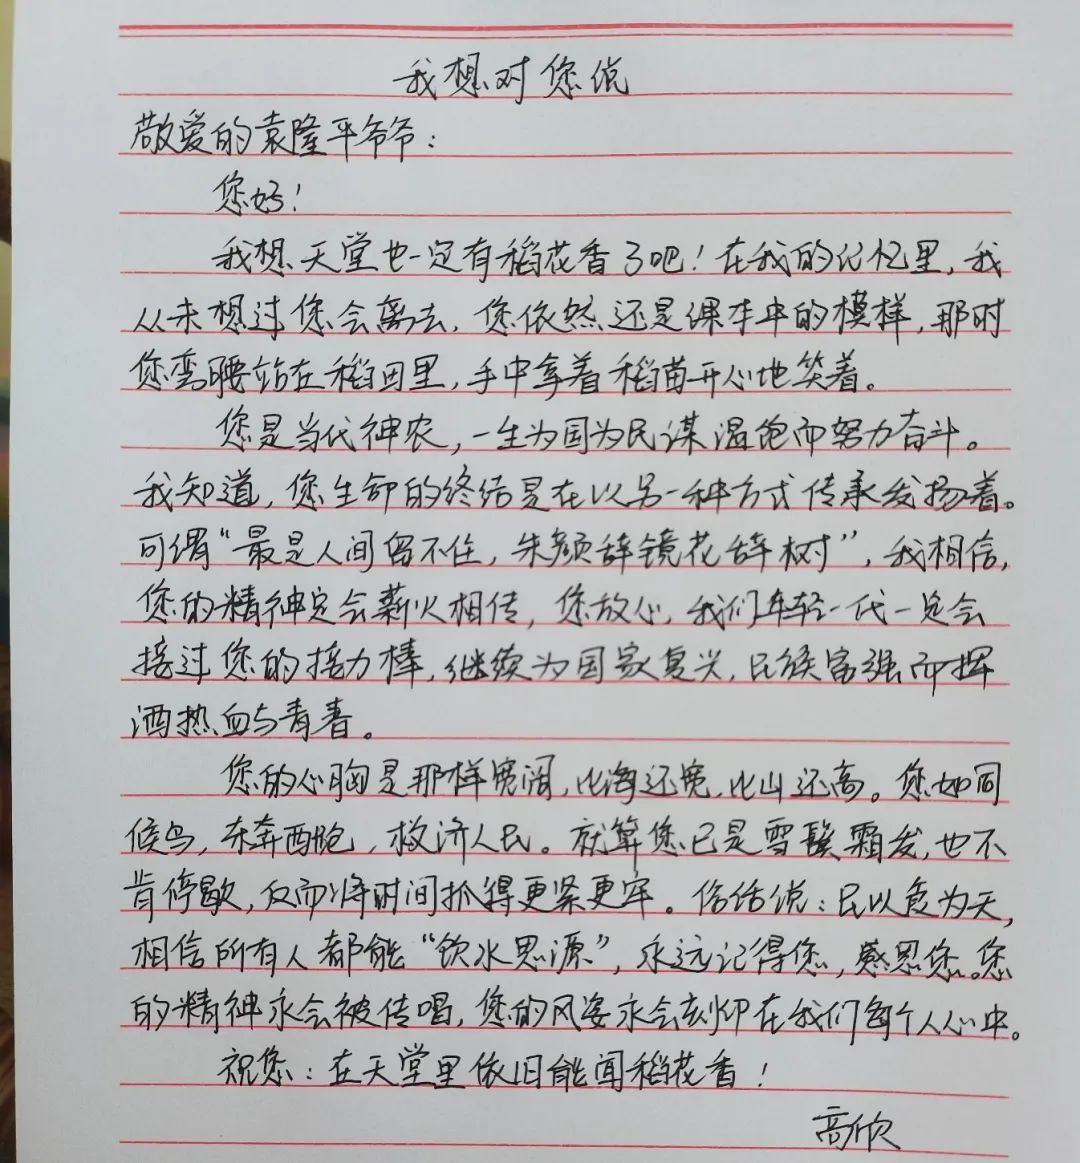 我想对您说
敬爱的袁隆平爷爷：
您好！
我想天堂也一定有稻花香了吧！在我的记忆里，我
从未想过您会离去，您依然还是课本中的模样，那时
您弯腰站在稻田里，手中拿着稻苗开心地笑着。
您是当代神农，一生为国为民谋温饱而努力奋斗。
我知道，您生命的终结是在以另一种方式传承发扬着。
可谓“最是人间留不住，朱颜辞镜花辞树”，我相信，
您的精神定会薪火相传，您放心，我们年轻一代一定会
接过您的接力棒，继续为国家复兴，民族富强而挥
洒热血与青春。
您的心胸是那样宽阔，比海还宽，比山还高。您如同
候鸟，东奔西跑，救济人民。就算您已是雪鬓霜发，也不
肯停歇，反而将时间抓得更紧更牢。俗话说：民以食为天，
相信所有人都能“饮水思源”，永远记得您，感恩您。您
的精神永会被传唱，您的风姿永会刻印在我们每个人心中。
祝您：在天堂里依旧能闻稻花香！
高欣